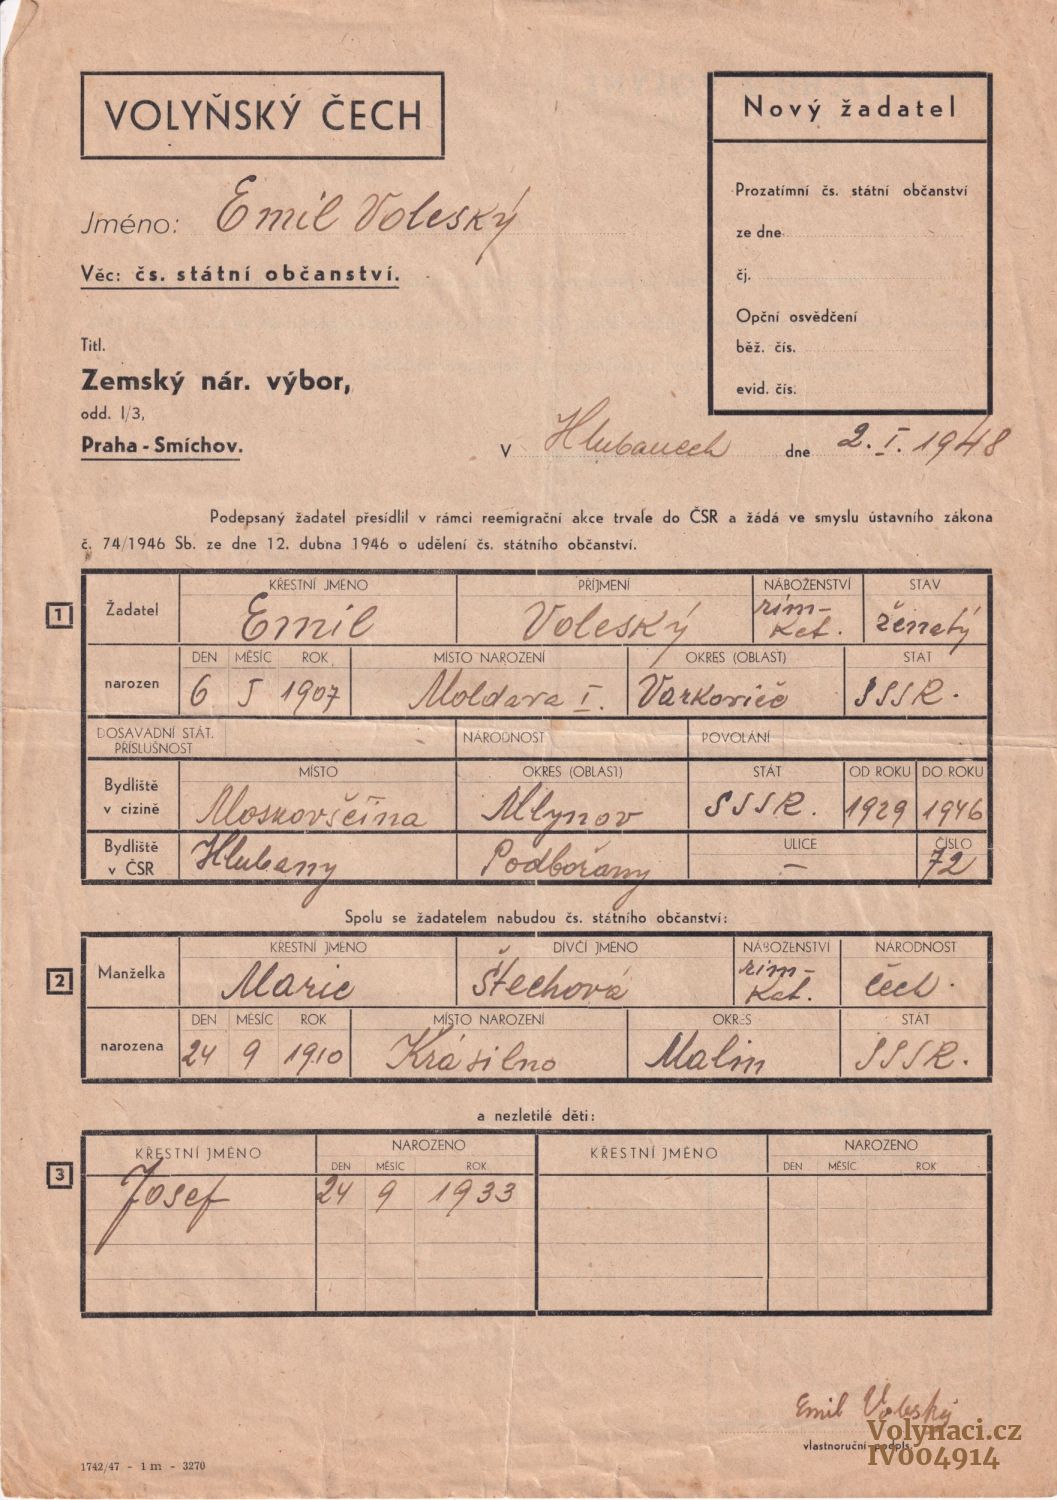 VOLYŇSKÝ ČECH
Nový žadatel
Jméno: Emil Voleský
Věc: čs. státní občanství.
Prozatímní čs. státní občanství
ze dne
čj.
Opční osvědčení
běž. čís.
evid. čís.
Titl.
Zemský nár. výbor,
odd. I/3,
Praha - Smíchov.
V Hlubanech dne 2. I. 1948
Podepsaný žadatel přesídlil v rámci reemigrační akce trvale do ČSR a žádá ve smyslu ústavního zákona
č. 74/1946 Sb. ze dne 12. dubna 1946 o udělení čs. státního občanství.
1 Žadatel
KŘESTNÍ JMÉNO PŘÍJMENÍ NÁBOŽENSTVÍ STAV
Emil Voleský řím- kat. ženatý
narozen
DEN MĚSÍC ROK MÍSTO NAROZENÍ OKRES (OBLAST) STÁT
6 5 1907 Moldava I. Varkoviče SSSR.
DOSAVADNÍ STÁT. PŘÍSLUŠNOST NÁRODNOST POVOLÁNÍ
Bydliště v cizině
MÍSTO OKRES (OBLAST) STÁT OD ROKU DO ROKU
Moskovščina Mlynov SSSR. 1929 1946
Bydliště v ČSR
ULICE ČÍSLO
Hlubany Podbořany – 72
Spolu se žadatelem nabudou čs. státního občanství:
2 Manželka
KŘESTNÍ JMÉNO DÍVČÍ JMÉNO NÁBOŽENSTVÍ NÁRODNOST
Marie Štechová řím- kat. čech.
narozena
DEN MĚSÍC ROK MÍSTO NAROZENÍ OKRES STÁT
24 9 1910 Krásilno Malin SSSR.
a nezletilé děti:
3
KŘESTNÍ JMÉNO NAROZENO KŘESTNÍ JMÉNO NAROZENO
DEN MĚSÍC ROK DEN MĚSÍC ROK
Josef 24 9 1933
Emil Voleský
vlastnoruční podpis.
Volynaci.cz
IV004914
1742/47 - 1 m - 3270